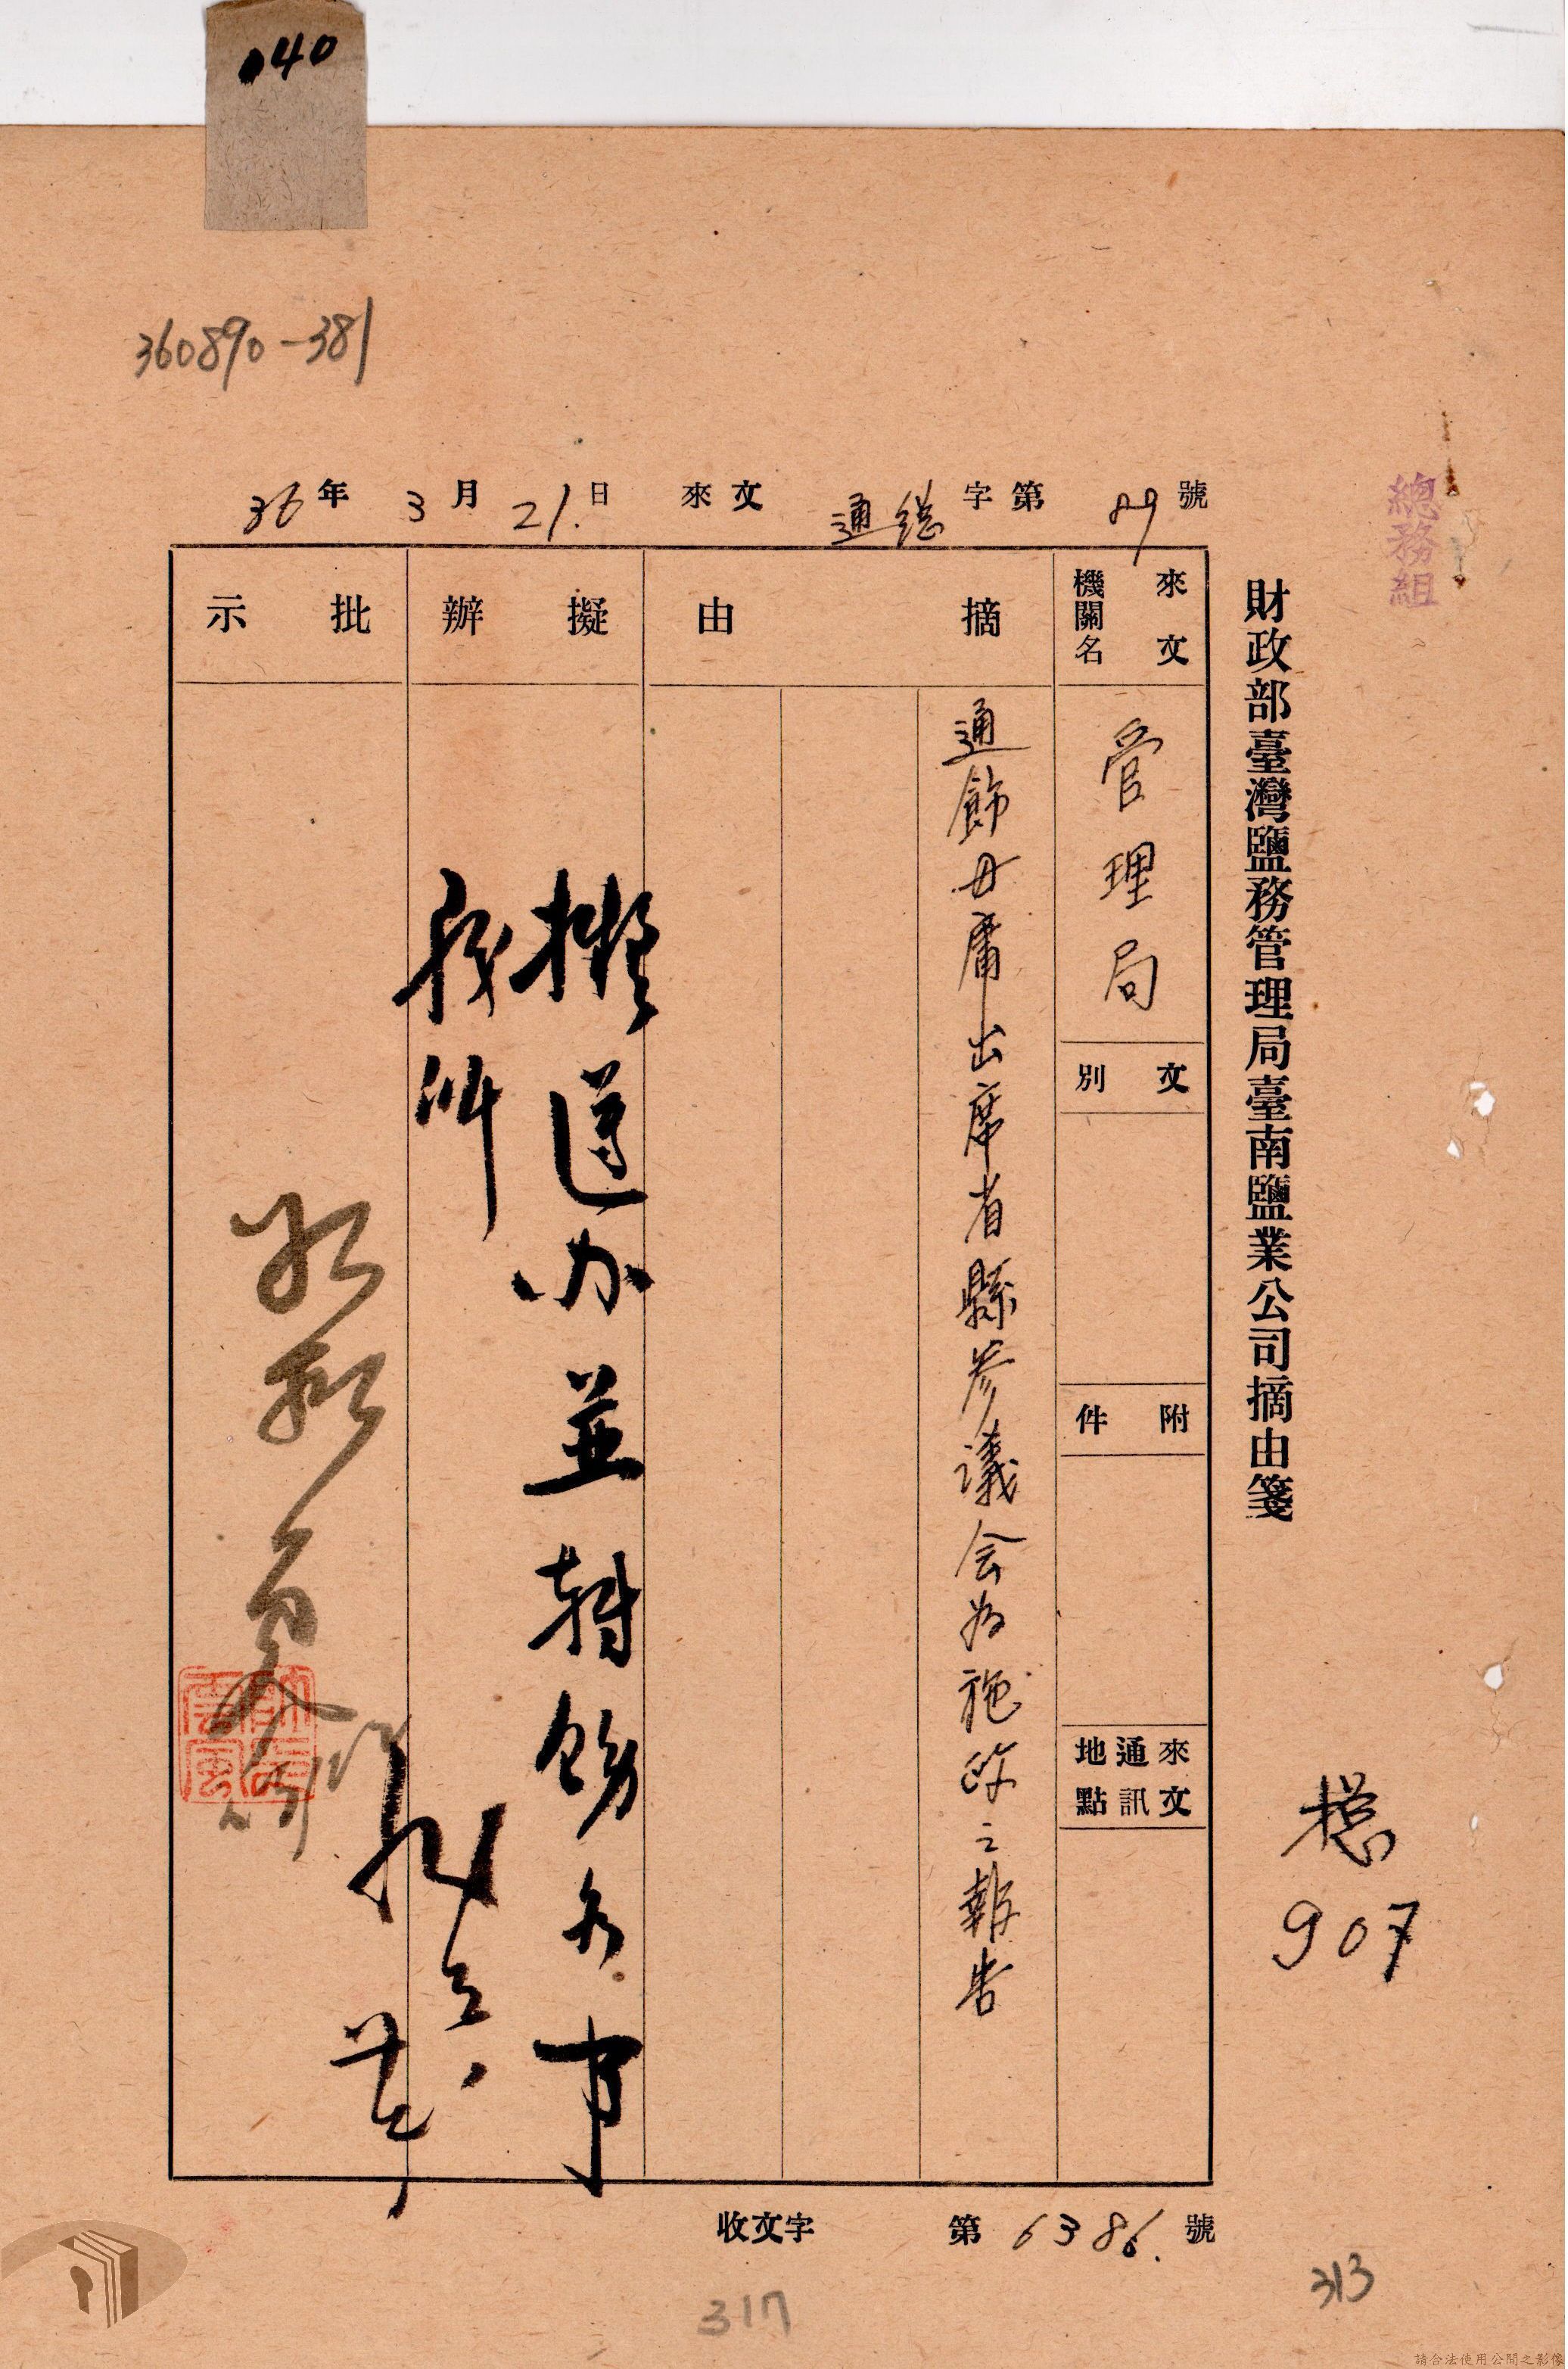 040
360890-381
總務組
財政部臺灣鹽務管理局臺南鹽業公司摘由箋
總
907
36年3月21日 來文 通總字第89號
來文機關名
管理局
文別
附件
來文通訊地點
摘由
通飭毋庸出席省縣參議会為施政之報告
擬辦
擬遵办並轉飭各事
務所
批示
收文字第6386號
313
317
請合法使用公開之影像